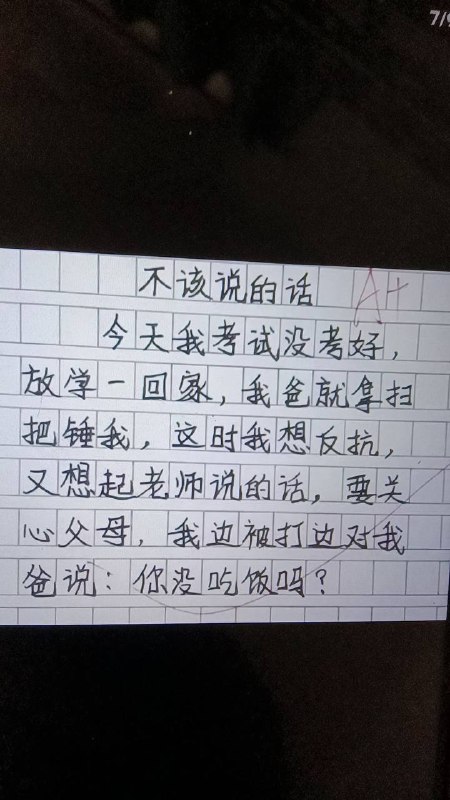 7/9
不该说的话
A+
今天我考试没考好,
放学一回家,我爸就拿扫
把锤我,这时我想反抗,
又想起老师说的话,要关
心父母,我边被打边对我
爸说:你没吃饭吗?